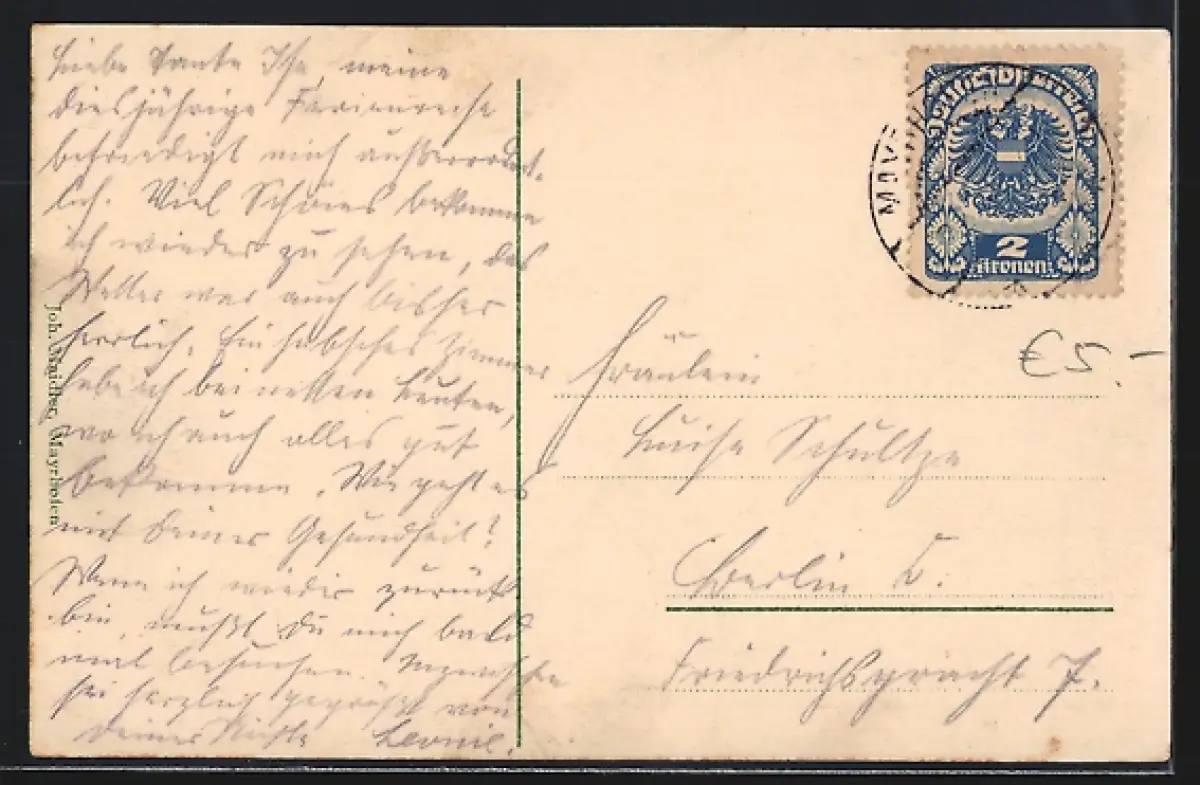 Liebe Tante Ilse, meine
diesjährige Ferienreise
befriedigt mich außerordent-
lich. Viel Schönes bekomme
ich wieder zu sehen, das
Wetter war auch bisher
herrlich. Ein hübsches Zimmer
habe ich bei netten Leuten,
wo ich auch alles gut
bekomme. Wie geht es
mit Deiner Gesundheit?
Wenn ich wieder zurück
bin, mußt Du mich bald
mal besuchen. Inzwischen
sei herzlich gegrüßt von
Deiner Nichte Leonie.
Joh. Maidler, Mayrhofen
Deutschösterreich
2
Kronen
MAY
€5.-
Fräulein
Luise Schultze
Berlin C.
Friedrichsgracht 7.